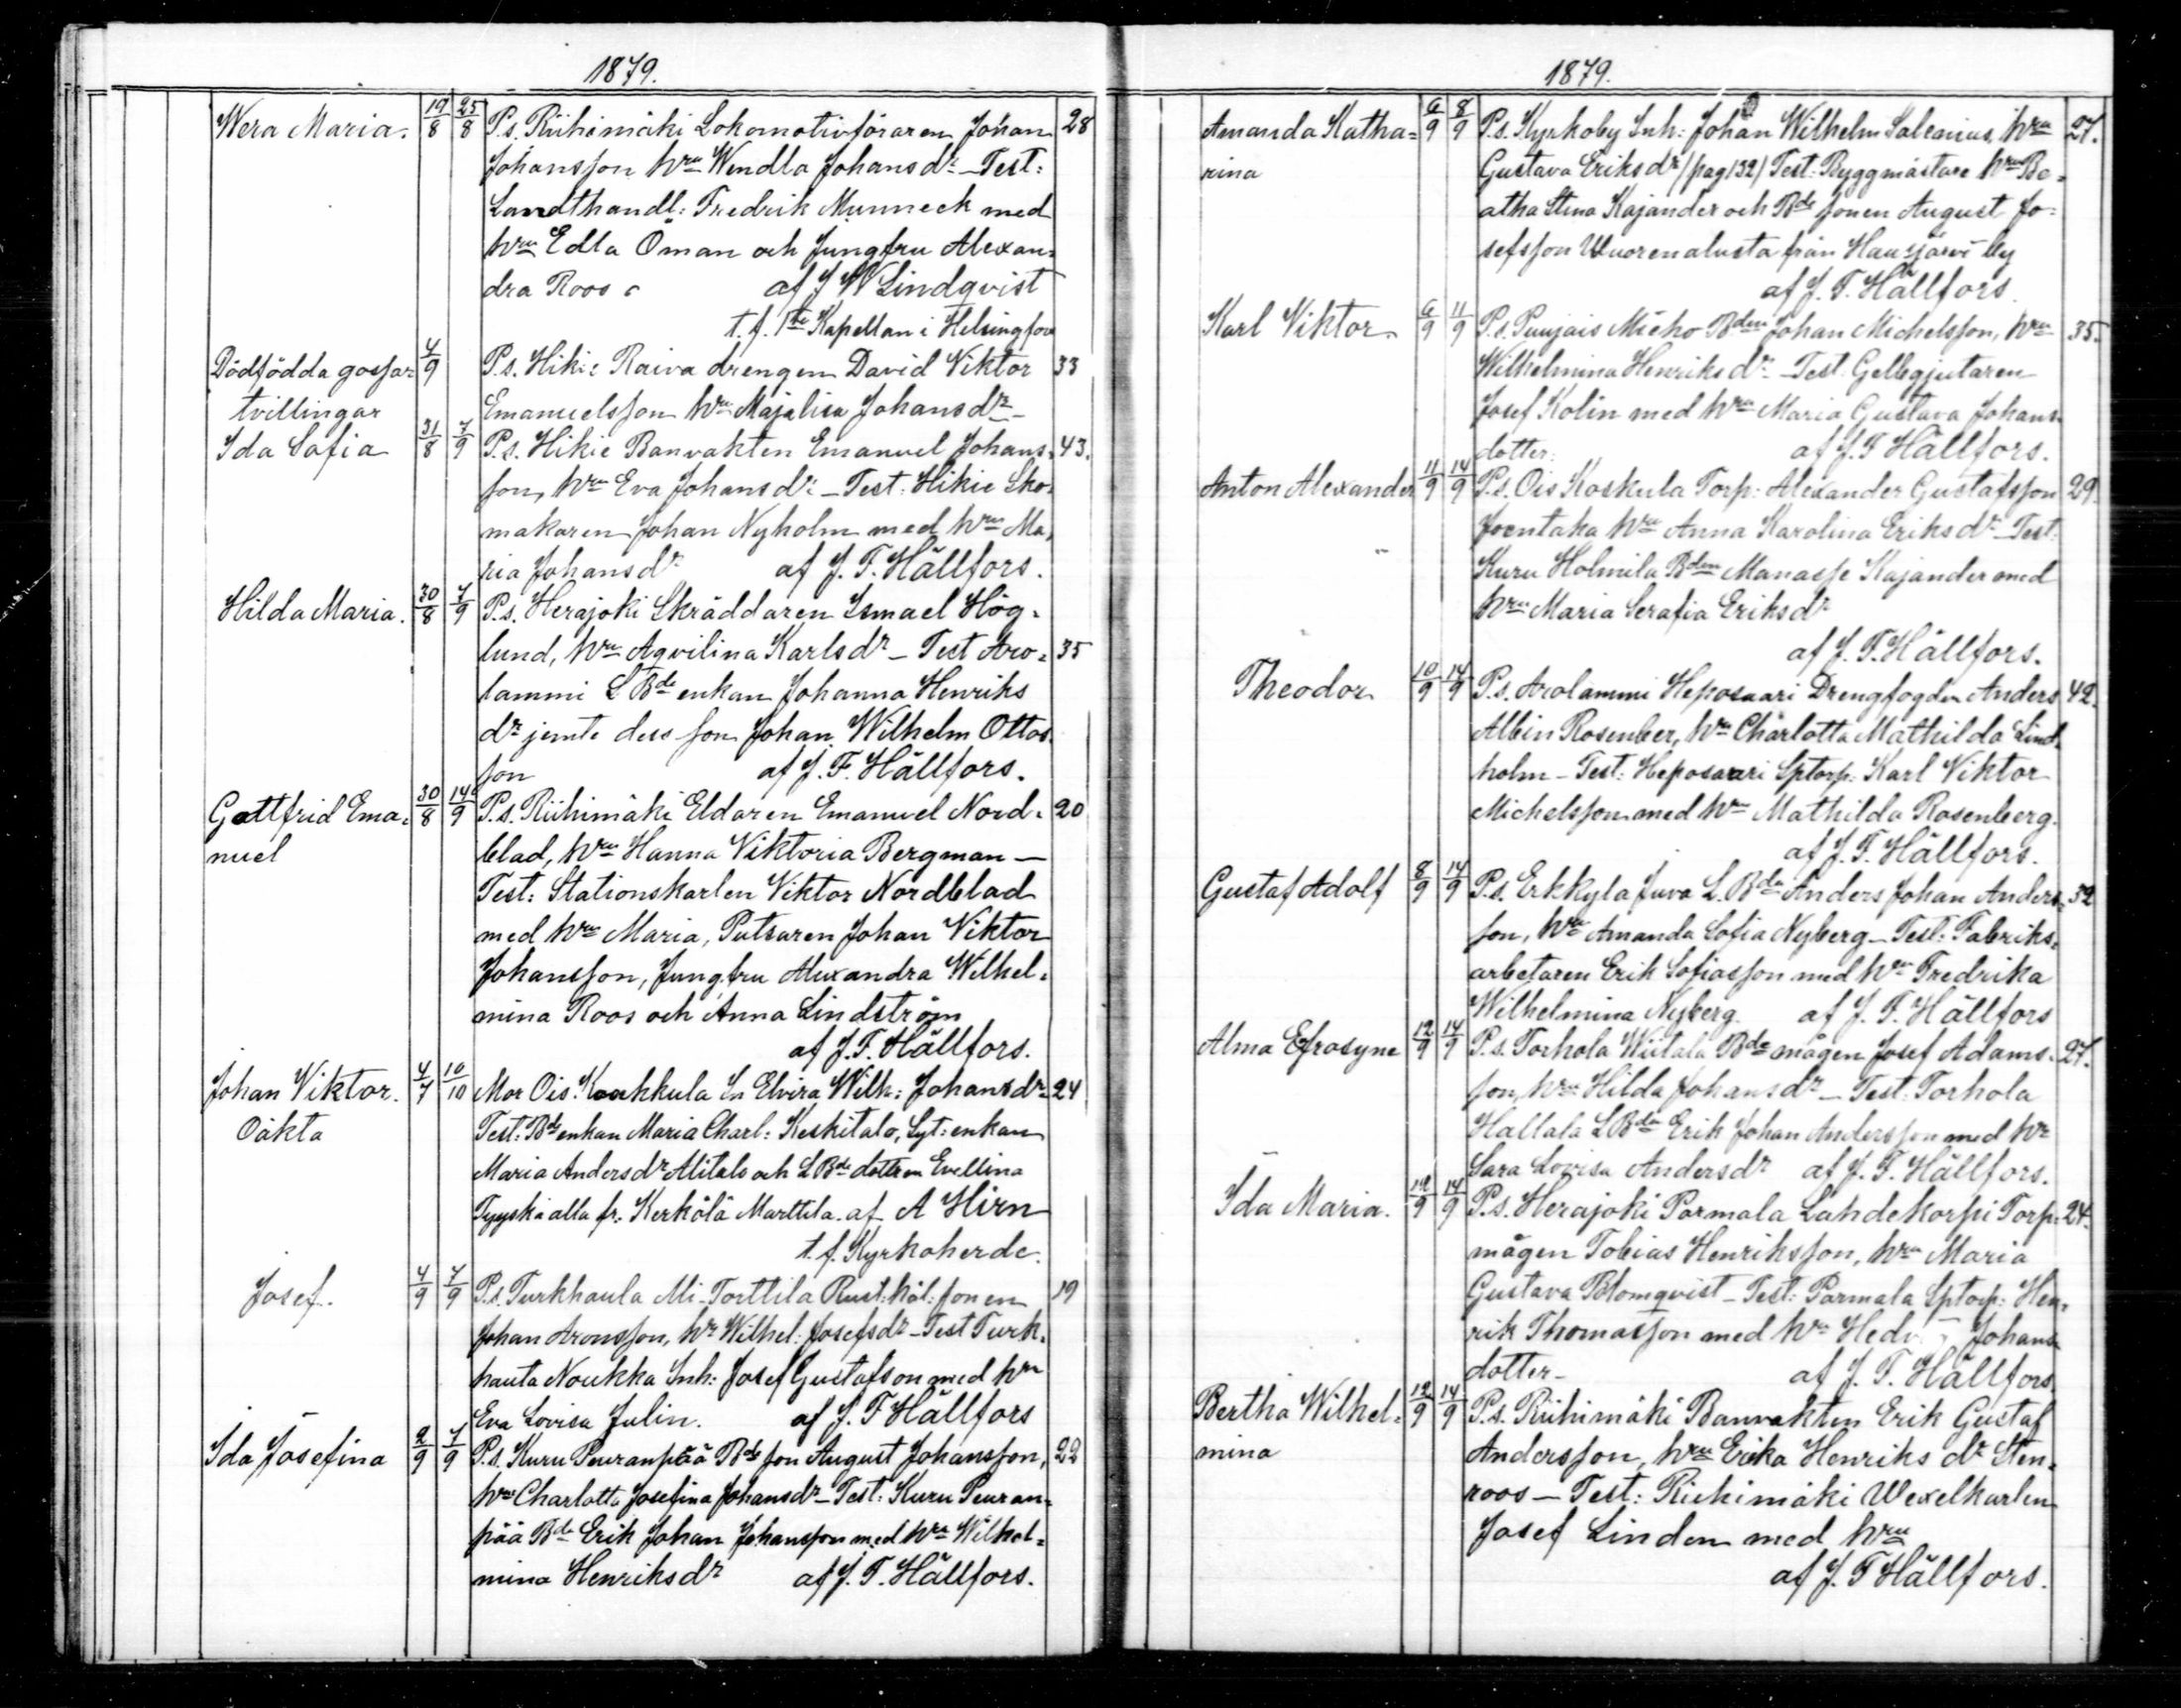 1879.
Wera Maria. 19/8 25/8 P.s. Riihimäki Lokomotivföraren Johan 28
Johansson hru Wendla Johansdr – Test:
Landthandl: Fredrik Munneck med
hru Edla Öman och Jungfru Alexan=
dra Roos af J W Lindqvist
t. f. 1ste Kapellan i Helsingfors
Dödfödda gossar 4/9 P.s. Hikie Raiva drengen David Viktor 33
tvillingar Emanuelsson hru Majalisa Johansdr –
Ida Sofia 31/8 7/9 P.s. Hikie Banvakten Emanuel Johans= 43.
son, hru Eva Johansdr – Test: Hikie Sko=
makaren Johan Nyholm med hru Ma=
ria Johansdr af J. F. Hällfors.
Hilda Maria. 30/8 7/9 P.s. Herajoki Skräddaren Ismael Hög=
lund, hru Aqvilina Karlsdr – Test Aro= 35
lammi L Bde enkan Johanna Henriks
dr jemte dess son Johan Wilhelm Ottos
son af J. F. Hällfors.
Gottfrid Ema= 30/8 14/9 P.s. Riihimäki Eldaren Emanuel Nord= 20
nuel blad, hru Hanna Viktoria Bergman –
Test: Stationskarlen Viktor Nordblad
med hru Maria, Putsaren Johan Viktor
Johansson, Jungfru Alexandra Wilhel=
mina Roos och Anna Lindström
af J. F. Hällfors.
Johan Viktor. 4/7 10/10 Mor Ois. Koukkula In Elvira Wilh: Johansdr 24
Oäkta Test: Bde enkan Maria Charl: Keskitalo, Syt: enkan
Maria Andersdr Alitalo och L Bde dottren Evellina
Tyyskä alla fr. Kerkölä Marttila. af A Hirn
t. f. Kyrkoherde.
Josef. 4/9 7/9 P.s. Turkhauta Ali-Torttila Rust:hål: sonen 19
Johan Aronsson, hr Wilhel: Josefsdr – Test Turk=
hauta Noukka Inh: Josef Gustafson med hru
Eva Lovisa Julin. af J. F Hällfors
Ida Josefina 2/9 7/9 P.s. Kuru Peuranpää Bde son August Johansson, 22
hru Charlotta Josefina Johansdr – Test: Kuru Peuran=
pää Bde Erik Johan Johansson med hru Wilhel=
mina Henriksdr af J. F. Hällfors.
1879.
Amanda Katha= 6/9 8/9 P.s. Kyrkoby Inh: Johan Wilhelm Saleanius, hru 27.
rina Gustava Eriksdr (pag 132) Test: Byggmästare hru Be=
atha Stina Kajander och Bde sonen August Jo=
sefsson Wuorenalusta från Hausjärvi by
af J. F. Hällfors.
Karl Viktor. 6/9 11/9 P.s. Puujais Micko Bden Johan Michelsson, hru 35.
Wilhelmina Henriksdr – Test. Gelbgjutaren
Josef Kolin med hru Maria Gustava Johans=
dotter. af J. F Hällfors.
Anton Alexander 11/9 14/9 P.s. Ois Koskula Torp: Alexander Gustafsson 29.
Joentaka hru Anna Karolina Eriksdr – Test:
Kuru Holmila Bden Manasse Kajander med
hru Maria Serafia Eriksdr
af J. F. Hällfors.
Theodor 10/9 14/9 P.s. Arolammi Heposaari Drengfogden Anders 42.
Albin Rosenber, hru Charlotta Mathilda Lind=
holm – Test: Heposaari Sptorp: Karl Viktor
Michelsson med hru Mathilda Rosenberg.
af J. F. Hällfors.
Gustaf Adolf 8/9 14/9 P.s. Erkkylä Juva L. Bden Anders Johan Anders= 32
son, hru Amanda Sofia Nyberg – Test: Fabriks=
arbetaren Erik Sofiasson med hru Fredrika
Wilhelmina Nyberg. af J. F. Hällfors
Alma Efrosyne 12/9 14/9 P.s. Torhola Wiitala Bde mågen Josef Adams= 27.
son, hru Hilda Johansdr – Test: Torhola
Hallala L Bden Erik Johan Andersson med hr
Sara Lovisa Andersdr af J. F. Hällfors.
Ida Maria. 12/9 14/9 P.s. Herajoki Parmala Lahdekorpi Torp= 24.
mågen Tobias Henriksson, hru Maria
Gustava Blomqvist – Test: Parmala Sptorp: Hen=
rik Thomasson med hru Hedvig Johans
dotter – af J. F. Hällfors
Bertha Wilhel= 12/9 14/9 P.s. Riihimäki Banvakten Erik Gustaf
mina Andersson, hru Erika Henriks dr Sten=
roos – Test: Riihimäki Wexelkarlen
Josef Linden med hru
af J. F Hällfors.